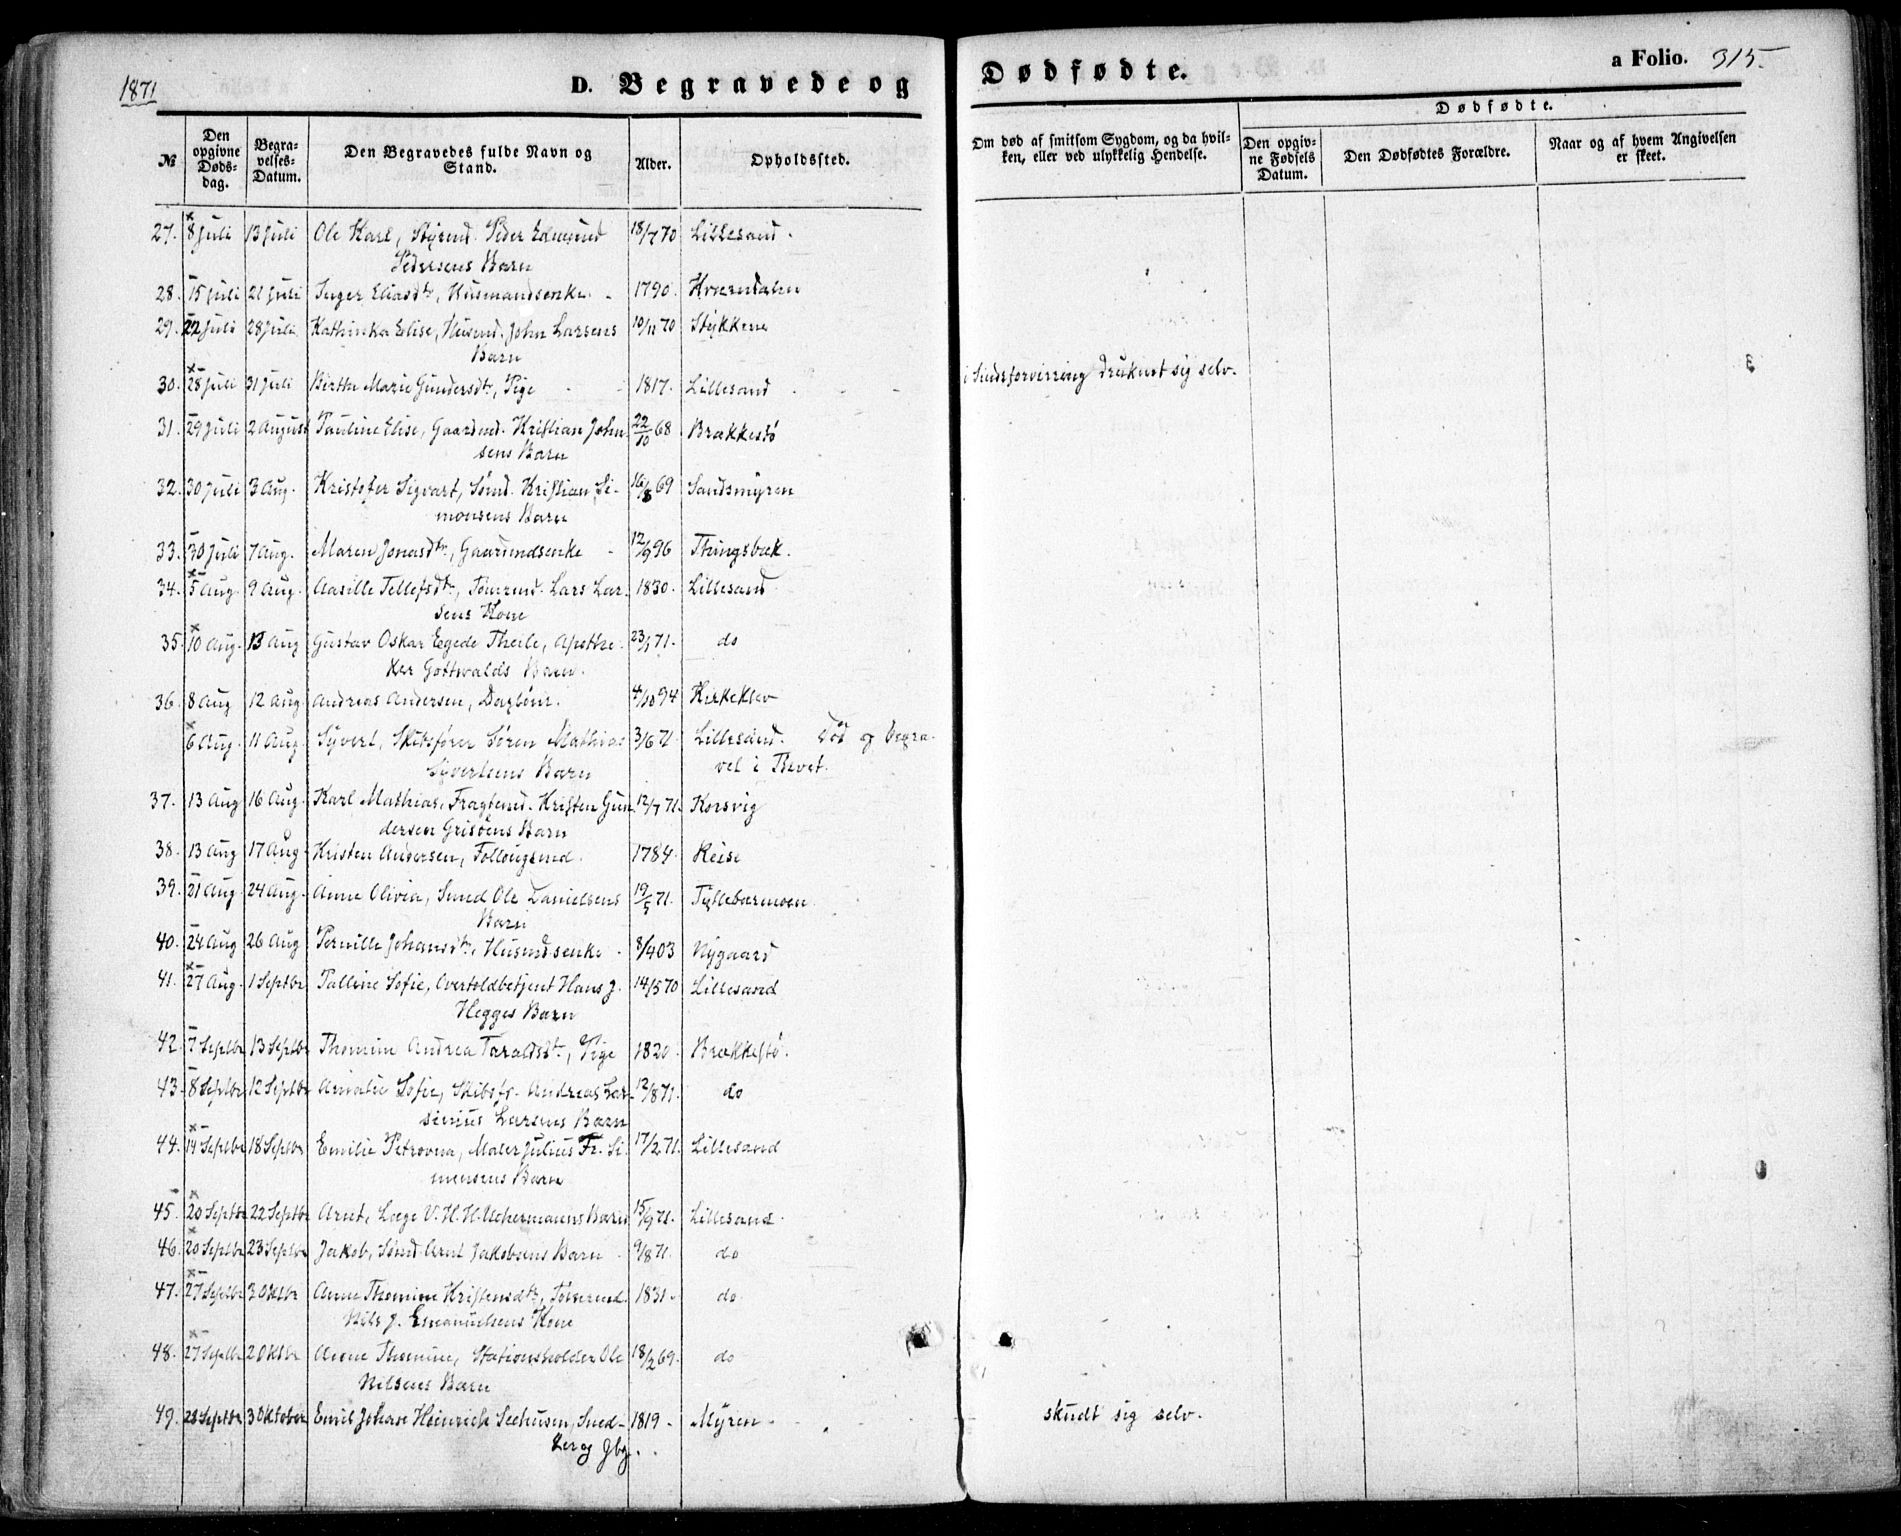 1871
D. Begravede og Dødfødte.
a Folio. 315.
№
Den opgivne Døds-dag.
Begra-velses-Datum.
Den Begravedes fulde Navn og Stand.
Alder.
Opholdssted.
Om død af smitsom Sygdom, og da hvil-ken, eller ved ulykkelig Hendelse.
Dødfødte.
Den opgiv-ne Fødsels Datum.
Den Dødfødtes Forældre.
Naar og af hvem Angivelsen er skeet.
27. 8 Juli 13 Juli Ole Karl, Styrmd. Peder Edmund 18/7 70 Lillesand.
Pedersens Barn
28. 15 Juli 21 Juli Inger Eliasdtr, Husmandsenke. 1790. Hverndalen
29. 22 Juli 28 Juli Kathinka Elise, Husmd. John Larsens 10/11 70 Stykkene
Barn
30. 28 Juli 31 Juli Birthe Marie Gundersdtr, Pige 1817. Lillesand i Sindsforvirring druknet sig selv.
31. 29 Juli 2 August Pauline Elise, Gaardmd. Kristian John- 22/10 68 Brækkestø
sens Barn
32. 30 Juli 3 Aug. Kristofer Sigvart, Sømd. Kristian Si- 16/8 69 Sandsmyren
monsens Barn
33. 30 Juli 7 Aug. Maren Jonasdtr, Gaardmdsenke 12/9 96 Thingsbæk.
34. 5 Aug. 9 Aug. Aasille Tellefsdtr, Tømrmd. Lars Lar- 1830. Lillesand
sens Kone
35. 10 Aug. 13 Aug Gustav Oskar Egede Theile, Apothe- 23/1 71. do
ker Gottwalds Barn.
36. 8 Aug 12 Aug Andreas Andersen, Daglønr. 4/10 94 Kirkeklev
6 Aug. 11 Aug. Syvert, Skibsfører Søren Mathias 3/6 71 Lillesand. Død og begra-
Syvertsens Barn vet i Tvedt.
37. 13 Aug 16 Aug. Karl Mathias, Fragtemd. Kristen Gun- 12/7 71. Korsvig
dersen Grisøens Barn
38. 13 Aug 17 Aug Kristen Andersen, Follougsmd. 1784. Reise
39. 21 Aug 24 Aug. Anne Olivia, Smed Ole Danielsens 19/5 71. Tyttebærmoen
Barn
40. 24 Aug 26 Aug Pernille Johansdtr, Husmdsenke 8/4 03 Nygaard
41. 27 Aug. 1 Septbr Palline Sofie, Overtoldbetjent Hans J. 14/5 70 Lillesand
Hegges Barn
42. 7 Septbr 13 Septbr Thomine Andrea Taraldsdtr, Pige 1820. Brækkestø.
43. 8 Septbr 12 Septbr Amalie Sofie, Skibsfr. Andreas Lar- 12/8 71. do
sinius Larsens Barn
44. 14 Septbr 18 Septbr Emilie Petrovna, Maler Julius Fr. Si- 17/2 71. Lillesand
monsens Barn
45. 20 Septbr 22 Septbr Arnt, Læge V. H. H. Uchermanns Barn 15/9 71. Lillesand.
46. 20 Septbr 23 Septbr Jakob, Sømd Arnt Jakobsens Barn 9/8 71. do
47. 27 Septbr 3 Oktbr Anne Thomine Kristensdtr, Tømrmd. 1831. do
Nils J. Emanuelsens Kone
48. 27 Septbr 2 Oktbr Anne Thomine, Stationsholder Ole 18/2 69. do
Nilsens Barn
49. 28 Septbr 3 Oktober Emil Johan Heinrich Seehusen, Sned- 1819 Myren skudt sig selv.
ker og Gbg.